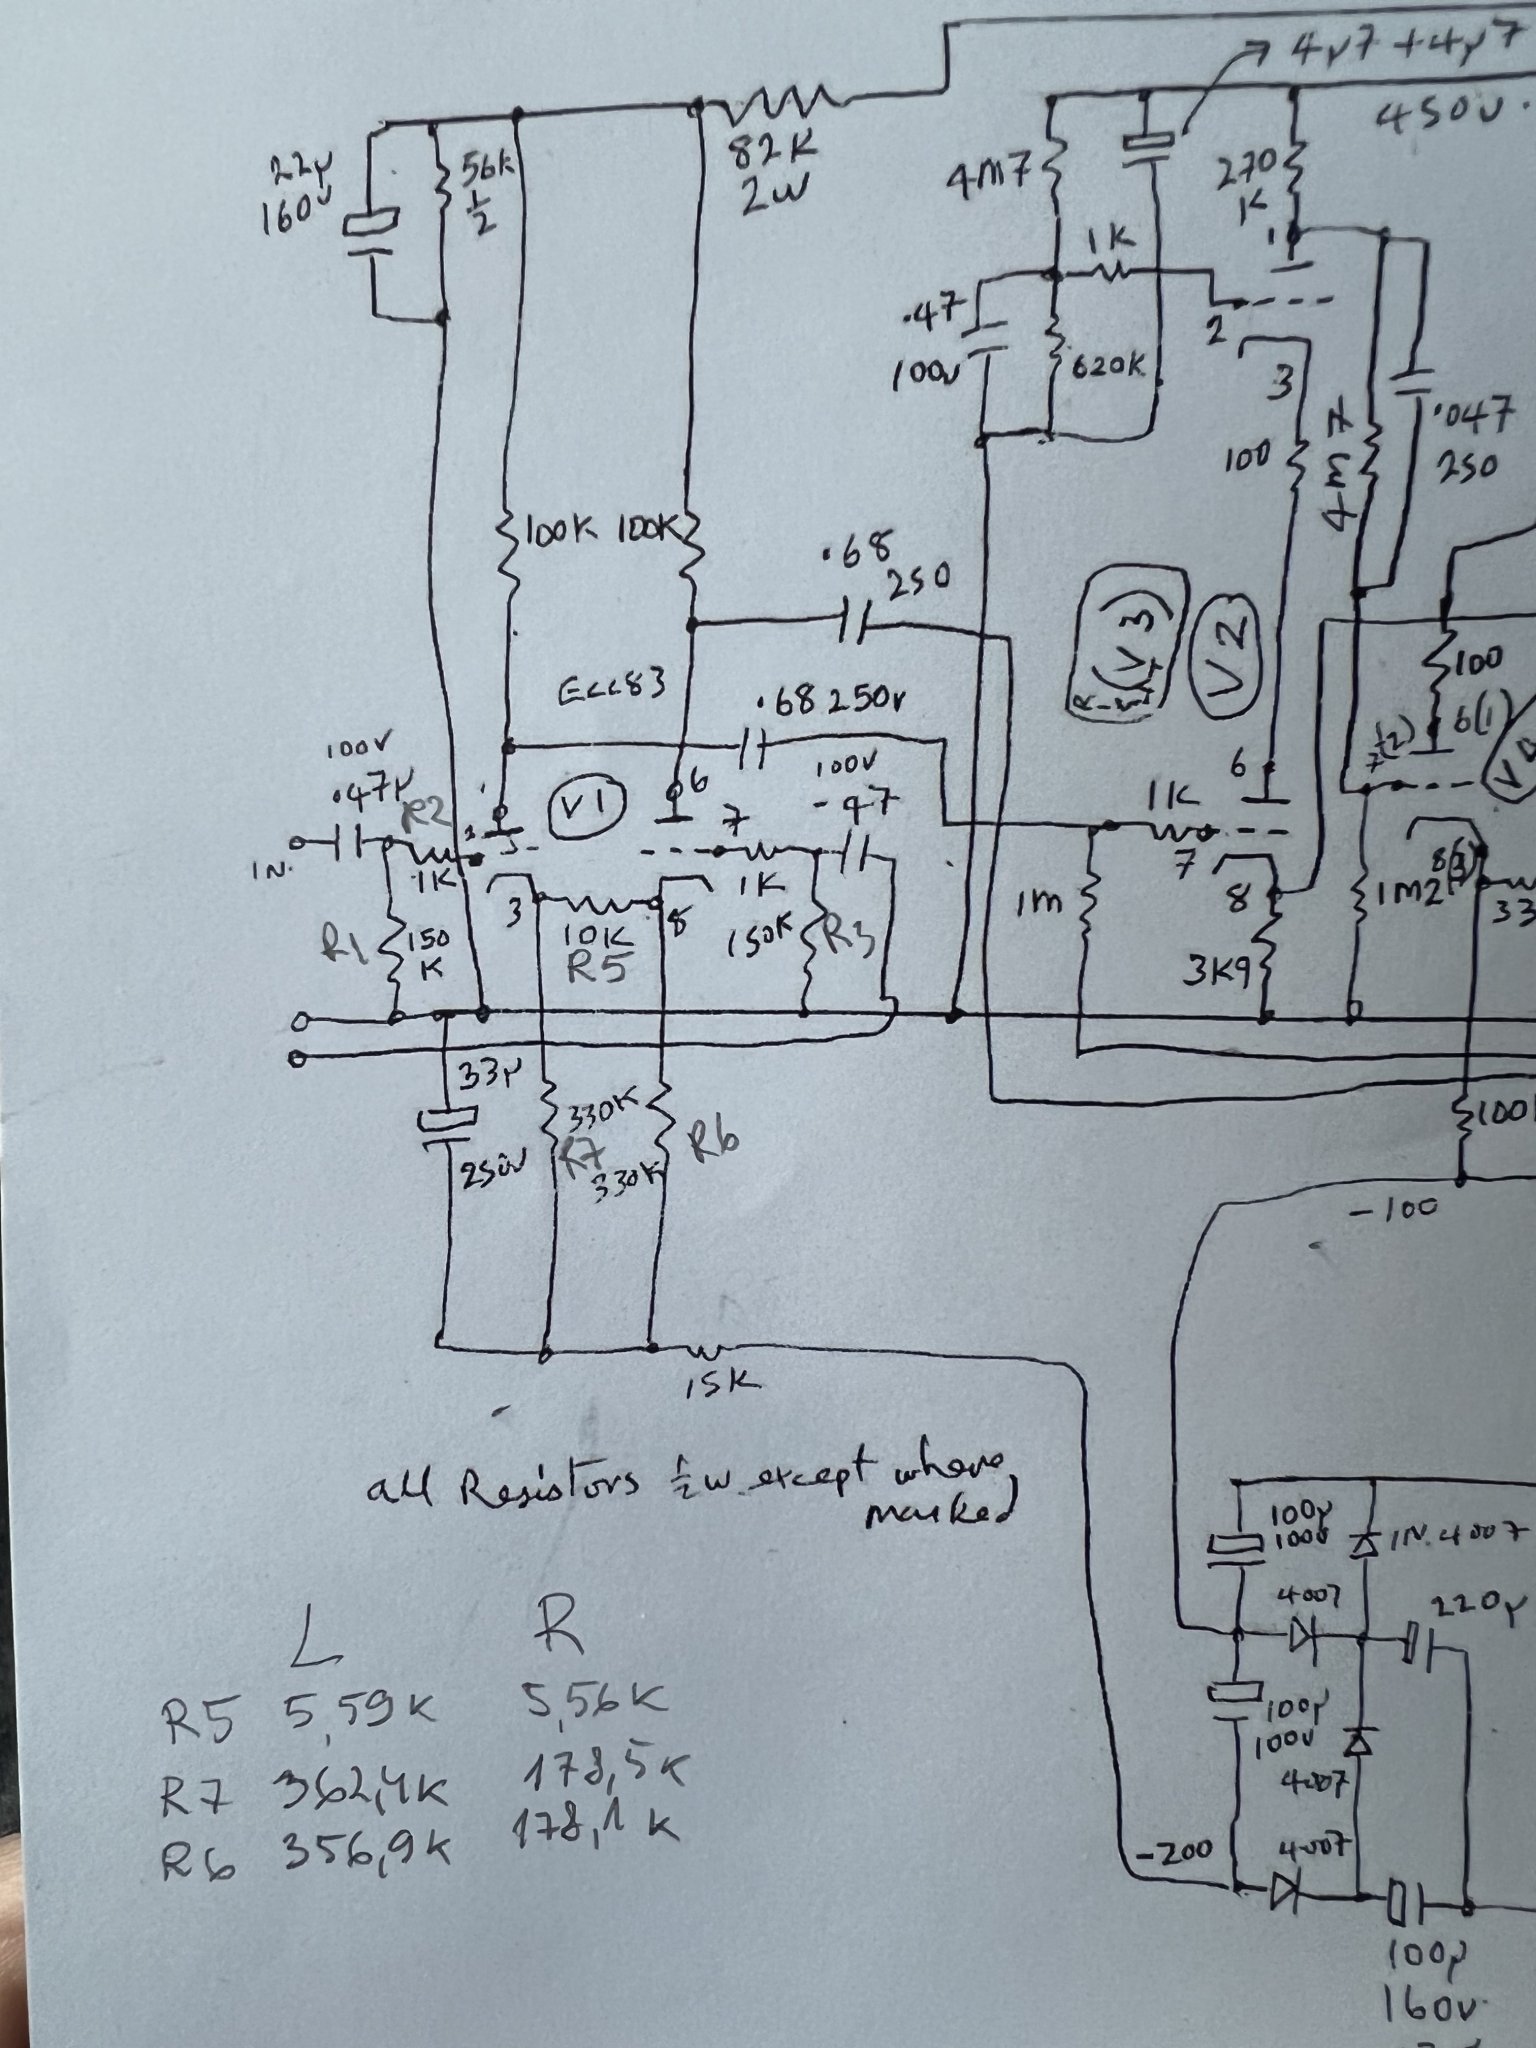 4µ7 + 4µ7
450v.
22µ
160v
56k
½
82K
2W
4M7
270
K
1
1K
2
.47
100v
620K
3
100
4M7
.047
250
100K
100K
.68
250
V3
V2
100
6(1)
Ecc83
.68 250v
7(2)
100v
.47µ
R2
V1
6
100v
.47
6
1K
7
7
IN.
1K
1K
3
10K
R5
8
150K
R3
R1
150
K
1M
8
3K9
1M2
8(3)
33
33µ
250v
330K
R7
330K
R6
100
-100
15K
all Resistors ½w. except where
marked
100µ
100v
1N.4007
4007
220µ
L R
R5 5,59K 5,56K
R7 362,4K 178,5K
R6 356,9K 178,1K
100µ
100v
4007
-200
4007
100µ
160v.